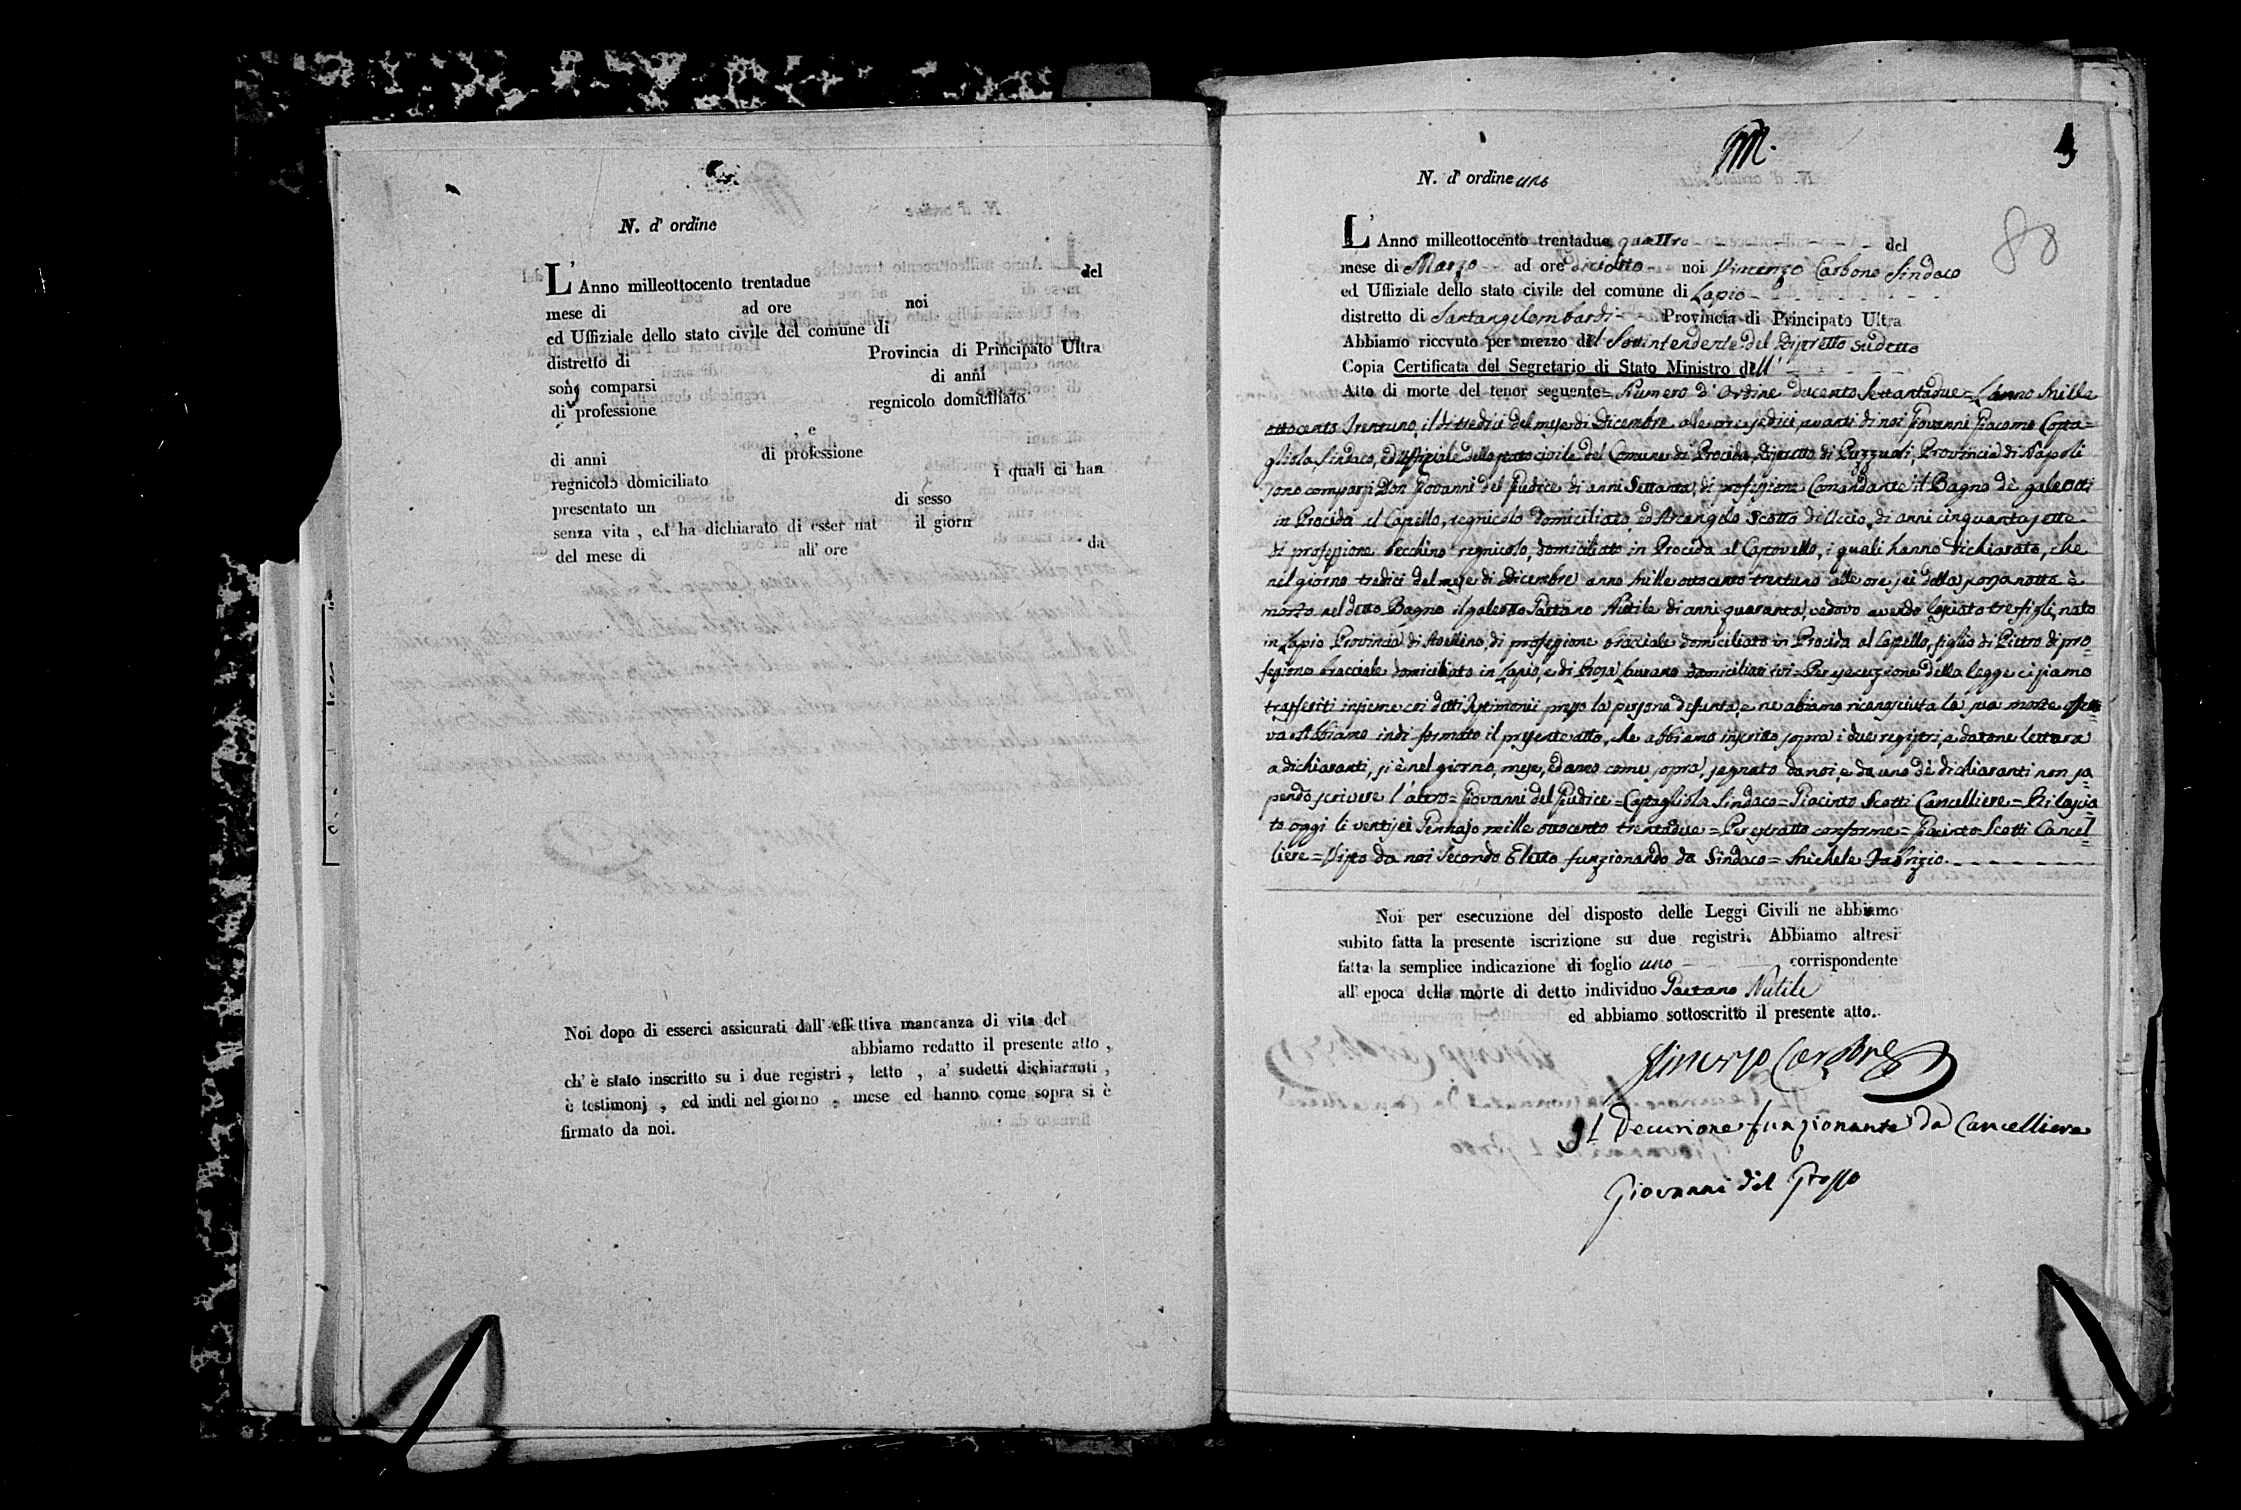 N. d' ordine
L' Anno milleottocento trentadue del
mese di ad ore noi
ed Uffiziale dello stato civile del comune di
distretto di Provincia di Principato Ultra
sono comparsi di anni
di professione regnicolo domiciliato
, e
di anni di professione
regnicolo domiciliato i quali ci han
presentato un di sesso
senza vita , ed ha dichiarato di esser nat il giorn
del mese di all' ore da
Noi dopo di esserci assicurati dall' effettiva mancanza di vita del
abbiamo redatto il presente atto ,
ch' è stato inscritto su i due registri , letto , a' sudetti dichiaranti ,
è testimonj , ed indi nel giorno , mese ed hanno come sopra si è
firmato da noi.
M.
N. d' ordine uno
88
L' Anno milleottocento trentadue quattro del
mese di Marzo ad ore diciotto noi Vincenzo Carbone Sindaco
ed Uffiziale dello stato civile del comune di Lapio
distretto di Santangelombardi Provincia di Principato Ultra
Abbiamo ricevuto per mezzo del Sottintendente del Distretto sudetto
Copia Certificata del Segretario di Stato Ministro dell'
Atto di morte del tenor seguente = Numero d'Ordine ducento settantadue = L'anno mille
ottocento trentuno, il dì tredici del mese di Dicembre alle ore sedici avanti di noi Giovanni Giacomo Costa=
gliola Sindaco, ed Uffiziale dello stato civile del Comune di Procida, Distretto di Puzzuoli, Provincia di Napoli
sono comparsi Don Giovanni del Giudice di anni settanta, di professione Comandante il Bagno de' galeotti
in Procida al Capello, regnicolo domiciliato, ed Arcangelo Scotto di Uccio, di anni cinquantasette
di professione becchino regnicolo, domiciliato in Procida al Casovello, i quali hanno dichiarato, che
nel giorno tredici del mese di Dicembre anno mille ottocento trentuno alle ore sei della scorsa notte è
morto nel detto Bagno il galeotto Gaetano Nutile di anni quaranta, vedovo avendo lasciato tre figli, nato
in Lapio Provincia di Avellino, di professione bracciale domiciliato in Procida al Capello, figlio di Pietro di pro=
fessione bracciale domiciliato in Lapio, e di Rosa Laurano domiciliati ivi = Per esecuzione della legge ci siamo
trasferiti insieme coi detti testimonii presso la persona defunta, e ne abbiamo riconosciuta la sua morte effetti=
va. Abbiamo indi formato il presente atto, che abbiamo inscritto sopra i due registri, e datone lettura
a dichiaranti, si è nel giorno, mese, ed anno come sopra, segnato da noi, e da uno de' dichiaranti non sa=
pendo scrivere l'altro = Giovanni del Giudice = Costagliola Sindaco = Giacinto Scotti Cancelliere = Rilascia=
to oggi li ventisei Gennajo mille ottocento trentadue = Per estratto conforme = Giacinto Scotti Cancel=
liere = Visto da noi Secondo Eletto funzionando da Sindaco = Michele Fabrizio.
Noi per esecuzione del disposto delle Leggi Civili ne abbiamo
subito fatta la presente iscrizione su due registri. Abbiamo altresì
fatta la semplice indicazione di foglio uno corrispondente
all' epoca della morte di detto individuo Gaetano Nutile
ed abbiamo sottoscritto il presente atto.
Vincenzo Carbone
Il Decurione funzionante da Cancelliere
Giovanni del Grosso